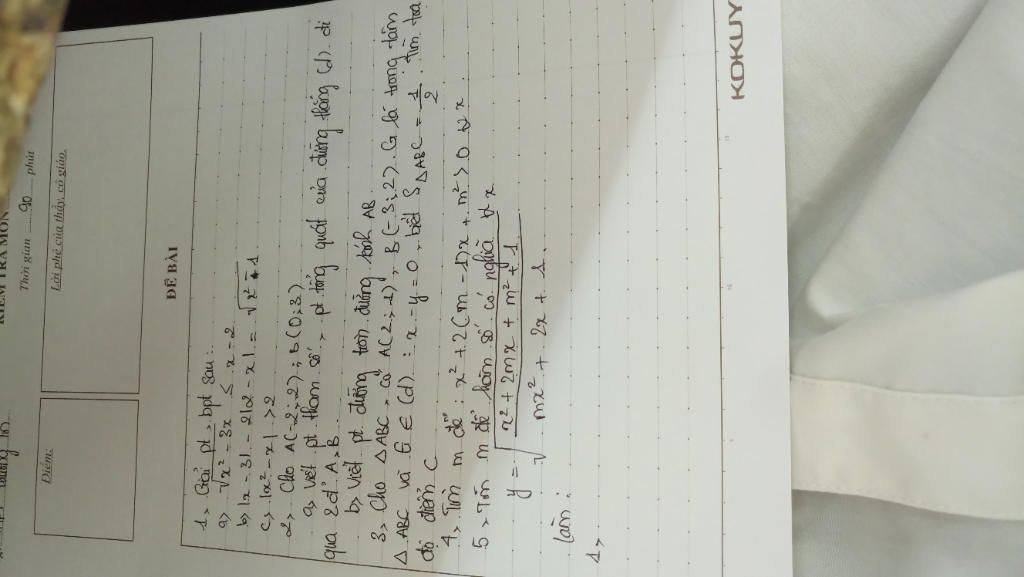 KIỂM TRA MÔN
Thời gian 90 phút
Điểm:
Lời phê của thầy, cô giáo.
ĐỀ BÀI
1, Giải pt, bpt sau:
a, √x² - 3x ≤ x - 2
b, |x - 3| - 2|2 - x| = √x² - 1
c, |x² - x| > 2
2, Cho A(-2; 2); B(0; 3)
a, Viết pt tham số, pt tổng quát của đường thẳng (d) đi
qua 2đ' A, B
b, Viết pt đường tròn đường kính AB
3, Cho △ABC, có A(2; -1), B(-3; 2). G là trọng tâm
△ABC và G ∈ (d): x - y = 0, biết S△ABC = 1/2. Tìm toạ
độ điểm C
4, Tìm m để: x² + 2(m - 1)x + m² > 0 ∀ x
5, Tìm m để hàm số có nghĩa ∀ x
y = √(x² + 2mx + m² + 1)/(mx² + 2x + 1)
Làm:
1,
KOKUY